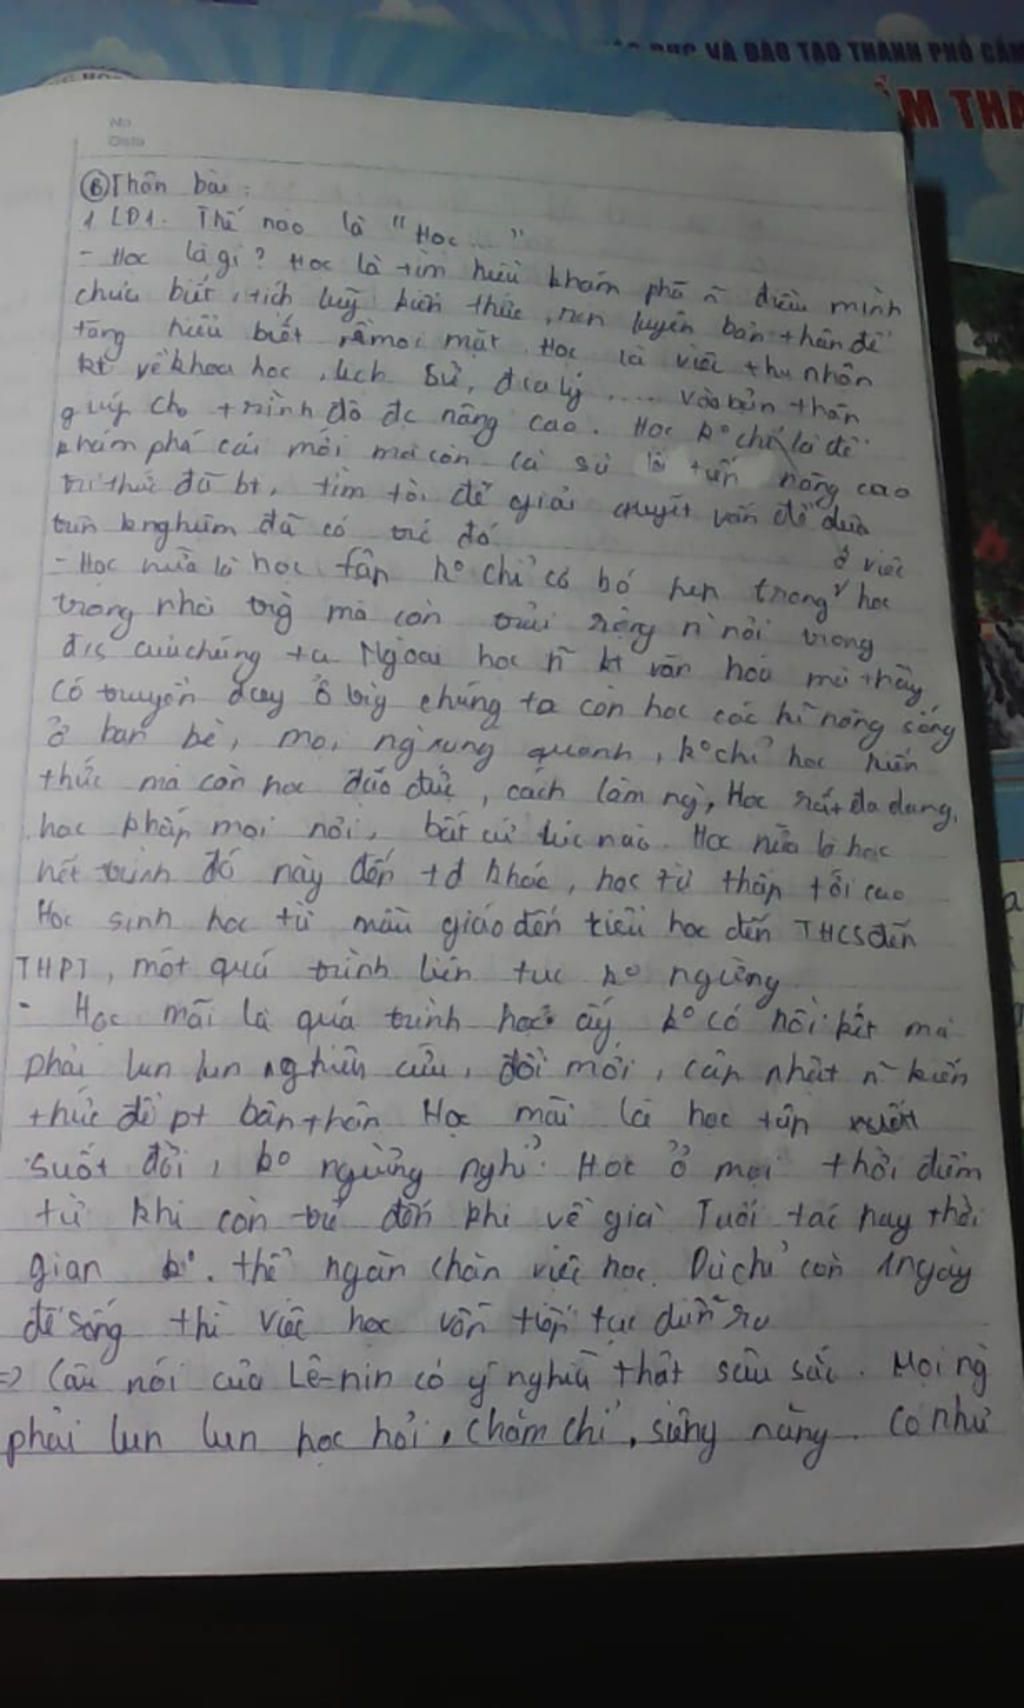 ĐÀO TẠO THÀNH PHỐ CẨM
ẨM THA
No
Date
Ⓑ Thân bài:
1 LĐ1. Thế nào là "Học ... "
- Học là gì? Học là tìm hiểu khám phá n̄ điều mình
chưa biết, tích luỹ kiến thức, rèn luyện bản thân để
tăng hiểu biết về mọi mặt. Học là việc thu nhận
kt về khoa học, lịch sử, địa lý .... vào bản thân
giúp cho trình độ đc nâng cao. Học ko chỉ là để
khám phá cái mới mà còn là sự nâng cao
tri thức đã bt, tìm tòi để giải quyết vấn đề dựa
trên knghiệm đã có trc đó
ở việc
- Học nữa là học tập ko chỉ có bó hẹn trong học
trong nhà trg mà còn trải rộng n nơi trong
đ/s của chúng ta Ngoài học n̄ kt văn hoá mà thầy
cô truyền dạy ở đây chúng ta còn học các kĩ năng sống
ở bạn bè, mọi ng xung quanh, ko chỉ học kiến
thức mà còn học đạo đức, cách làm ng, Học rất đa dạng,
học khắp mọi nơi, bất cứ lúc nào. Học nữa là học
hết trình độ này đến tđ khác, học từ thấp tới cao
Học sinh học từ mẫu giáo đến tiểu học đến THCS đến
THPT, một quá trình liên tục ko ngừng
- Học mãi là quá trình học ấy ko có hồi kết mà
phải lun lun nghiên cứu, đổi mới, cập nhật n̄ kiến
thức để pt bản thân Học mãi là học tập
suốt đời, ko ngừng nghỉ. Học ở mọi thời điểm
từ khi còn trẻ đến khi về già Tuổi tác hay thời
gian ko. thể ngăn chặn việc học. Dù chỉ còn 1 ngày
để sống thì việc học vẫn tiếp tục diễn ra
=> Câu nói của Lê-nin có ý nghĩa thật sâu sắc. Mọi ng
phải lun lun học hỏi, chăm chỉ, siêng năng. Có như